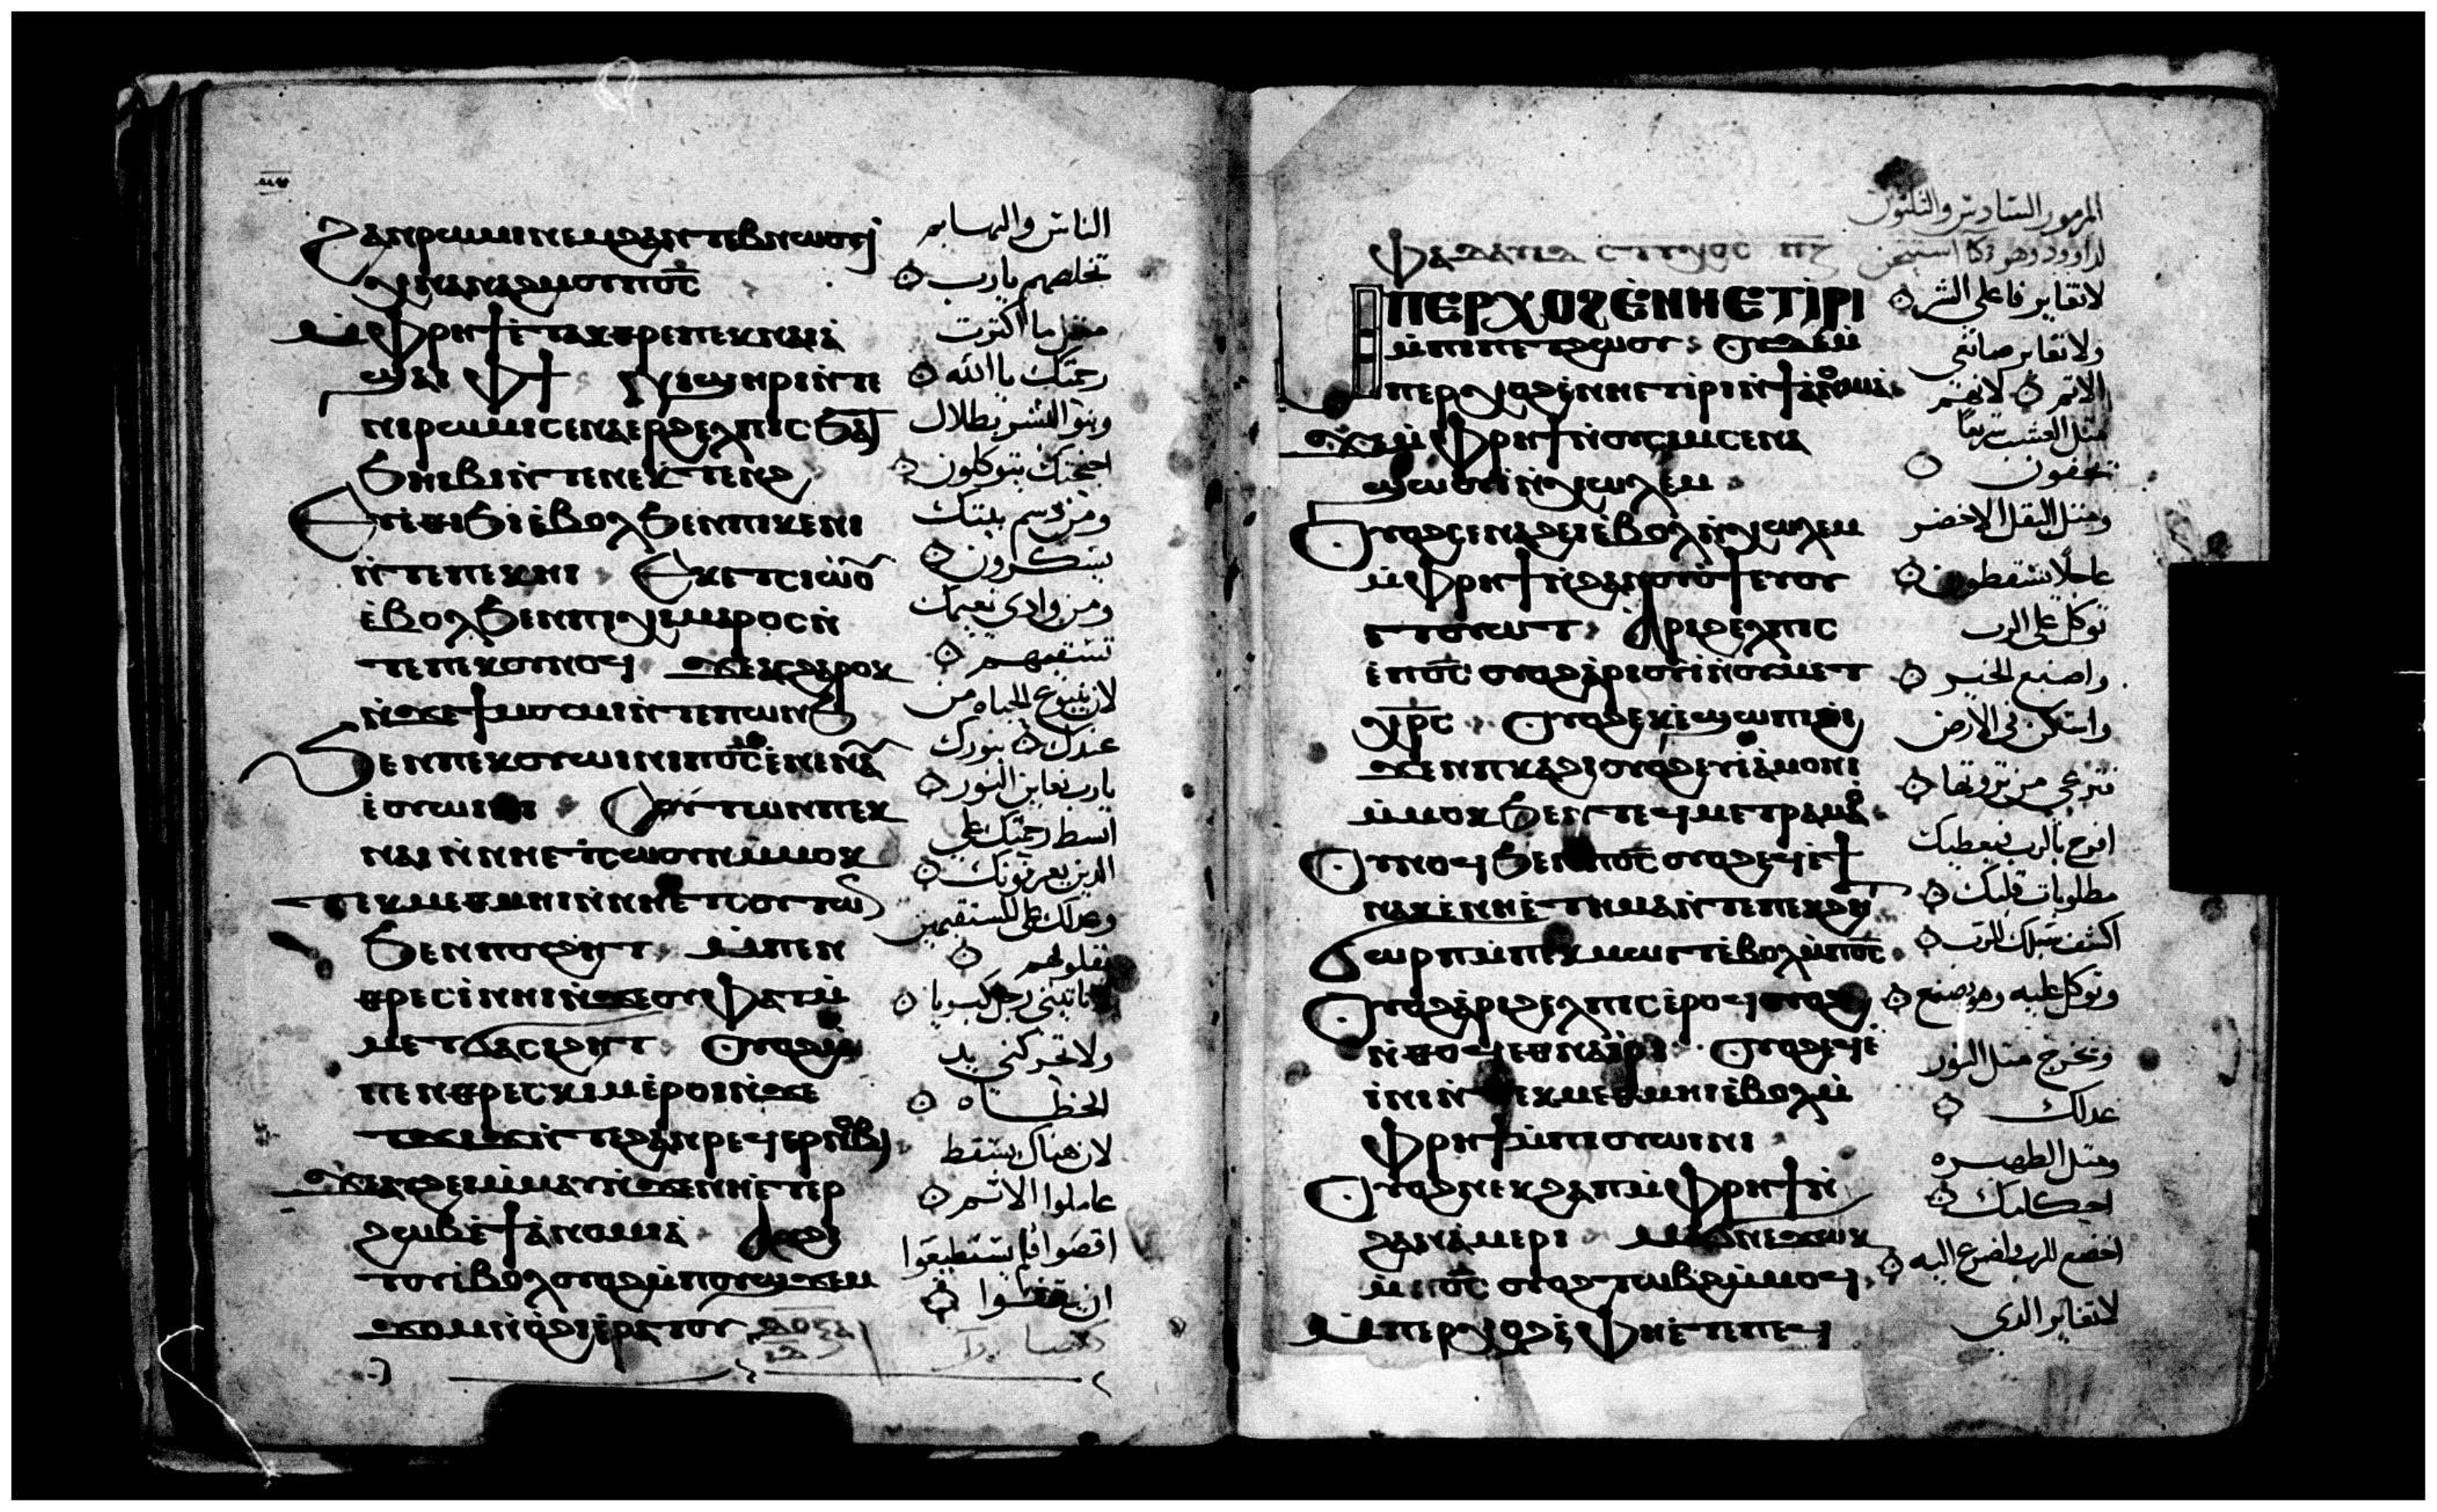 ϩⲁⲛⲣⲱⲙⲓ ⲛⲉⲙ ϩⲁⲛⲧⲉⲃⲛⲱⲟⲩⲓ
ⲭⲛⲁⲛⲁϩⲙⲟⲩ ⲡϭ̅ⲥ̅
ⲙ̀ⲫⲣⲏϯ ⲉ̀ⲧⲁⲕⲑⲣⲉ ⲡⲉⲕⲛⲁⲓ ⲁ̀
ϣⲁⲓ ⲫϯ ⲛⲓϣⲏⲣⲓ ⲛ̀ⲧⲉ
ⲛⲓⲣⲱⲙⲓ ⲥⲉⲛⲁⲉⲣϩⲉⲗⲡⲓⲥ ϧⲁ
ϧⲏⲓⲃⲓ ⲛ̀ⲧⲉ ⲛⲉⲕⲧⲉⲛϩ
ⲉⲩⲉ̀ⲑⲓϧⲓ ⲉ̀ⲃⲟⲗ ϧⲉⲛ ⲡⲓⲕⲉⲛⲓ
ⲛ̀ⲧⲉ ⲡⲉⲕⲏⲓ ⲉⲕⲉⲧⲥⲓⲱⲟⲩ
ⲉ̀ⲃⲟⲗ ϧⲉⲛ ⲡⲓⲭⲉⲙⲙⲣⲟⲥ ⲛ̀
ⲧⲉ ⲡⲉⲕⲟⲩⲛⲟϥ ϫⲉ ⲁⲥϩⲁⲣⲟⲕ
ⲛ̀ϫⲉ ϯⲙⲟⲩⲙⲓ ⲛ̀ⲧⲉ ⲡⲱⲛϧ
ϧⲉⲛ ⲡⲉⲕⲟⲩⲱⲓⲛⲓ ⲡϭ̅ⲥ̅ ⲉⲛⲉⲛⲁⲩ
ⲉ̀ⲟⲩⲱⲓⲛⲓ ⲡⲉⲕ
ⲛⲁⲓ ⲛ̀ⲛⲏⲉⲧⲥⲱⲟⲩⲛ ⲙ̀ⲙⲟⲕ
ⲧⲉⲕⲙⲉⲑⲙⲏⲓ ⲛ̀ⲛⲏⲉⲧⲥⲟⲩⲧⲱⲛ
ϧⲉⲛ ⲡⲟⲩϩⲏⲧ ⲙ̀ⲡⲉⲛ
ⲑⲣⲉⲥⲓ̀ ⲛⲏⲓ ⲛ̀ϫⲉ ⲟⲩⲫⲁⲧ ⲙ̀
ⲙⲉⲧϭⲁⲥⲓϩⲏⲧ ⲟⲩⲟϩ ⲙ̀
ⲡⲉⲛⲑⲣⲉⲥⲕⲓⲙ ⲉ̀ⲣⲟⲓ ⲛ̀ϫⲉ
ⲧϫⲓϫ ⲛ̀ⲧⲉ ϩⲁⲛⲣⲉϥⲉⲣⲛⲟⲃⲓ
ϫⲉ ⲁⲩϩⲉⲓ ⲙ̀ⲙⲁⲩ ⲛ̀ϫⲉ ⲛⲏⲉⲧⲉⲣ
ϩⲱⲃ ⲉ̀ϯⲁⲛⲟⲙⲓⲁ̀ ⲁⲩϩⲓ
ⲧⲟⲩ ⲉ̀ⲃⲟⲗ ⲟⲩⲟϩ ⲙ̀ⲡⲟⲩϣϫⲉⲙ
ϫⲟⲙ ⲛ̀ⲟ̀ϩⲓ ⲉ̀ⲣⲁⲧⲟⲩ ⲇⲟⲝⲁ
الناس والبهايم
تخلصهم يارب
مثل ما اكثرت
رحمتك يا الله
وبنو البشر بظلال
اجنحتك يتوكلون
ومن دسم بيتك
يسكرون
ومن وادي نعيمك
تسقيهم
لان ينبوع الحياه من
عندك بنورك
يارب نعاين النور
ابسط رحمتك على
الذين يعرفونك
وعدلك على المستقيمين
بقلوبهم
لا تاتيني رجل كبريا
ولا تحركني يد
الخطاه
لان هناك يسقط
عاملوا الاثم
اقصوا فلم يستطيعوا
ان يقفوا
المزمور السادس والثلثون
لداوود
ⲯⲁⲗⲙⲟⲥ ⲥⲧⲓⲭⲟⲥ
ⲙ̀ⲡⲉⲣⲭⲟϩ ⲉ̀ⲛⲏⲉⲧⲓ̀ⲣⲓ
ⲙ̀ⲡⲓⲡⲉⲧϩⲱⲟⲩ ⲟⲩⲇⲉ ⲙ̀
ⲡⲉⲣⲭⲟϩ ⲉ̀ⲛⲏⲉⲧⲓ̀ⲣⲓ ⲛ̀ϯⲁ̀ⲛⲟⲙⲓⲁ
ϫⲉ ⲙ̀ⲫⲣⲏϯ ⲛ̀ⲟⲩⲥⲙ ⲥⲉⲛⲁ
ϣⲱⲟⲩⲓ ⲛ̀ⲭⲱⲗⲉⲙ
ⲟⲩⲟϩ ⲥⲉⲛⲁϩⲉⲓ ⲉ̀ⲃⲟⲗ ⲛ̀ⲭⲱⲗⲉⲙ
ⲙ̀ⲫⲣⲏϯ ⲛ̀ϩⲁⲛⲟⲩⲟϯ ⲉⲩ
ⲟⲩⲉⲧⲟⲩⲱⲧ ⲁⲣⲓϩⲉⲗⲡⲓⲥ
ⲉ̀ⲡϭ̅ⲥ̅ ⲟⲩⲟϩ ⲁ̀ⲣⲓⲟⲩⲓ̀ ⲛ̀ⲟⲩⲙⲉⲧ
ⲭⲣ̅ⲥ̅ ⲟⲩⲟϩ ⲉⲕⲉ̀ϣⲱⲡⲓ ϩⲓ
ϫⲉⲛ ⲡⲕⲁϩⲓ ⲟⲩⲟϩ ⲉⲩⲉ̀ⲁ̀ⲙⲟⲛⲓ
ⲙ̀ⲙⲟⲕ ϧⲉⲛ ⲧⲉϥⲙⲉⲧⲣⲁⲙⲁⲟ
ⲟⲩⲛⲟϥ ϧⲉⲛ ⲡϭ̅ⲥ̅ ⲟⲩⲟϩ ⲉϥⲉ̀ϯ
ⲛⲁⲕ ⲛ̀ⲛⲓⲉ̀ⲧⲏⲙⲁ ⲛ̀ⲧⲉ ⲡⲉⲕϩⲏⲧ
ϭⲱⲣⲡ ⲙ̀ⲡⲉⲕⲙⲱⲓⲧ ⲉ̀ⲃⲟⲗ ⲙ̀ⲡϭ̅ⲥ̅
ⲟⲩⲟϩ ⲁ̀ⲣⲓϩⲉⲗⲡⲓⲥ ⲉ̀ⲣⲟϥ ⲟⲩⲟϩ
ⲛ̀ⲑⲟϥ ⲉⲑⲛⲁⲓ̀ⲣⲓ ⲟⲩⲟϩ ⲉϥⲉ̀
ⲓ̀ⲛⲓ ⲛ̀ⲧⲉⲕⲙⲉⲑⲙⲏⲓ ⲉ̀ⲃⲟⲗ ⲙ̀
ⲫⲣⲏϯ ⲙ̀ⲡⲓⲟⲩⲱⲓⲛⲓ
ⲟⲩⲟϩ ⲛⲉⲕϩⲁⲡ ⲙ̀ⲫⲣⲏϯ ⲛ̀
ϩⲁⲛⲁ̀ⲙⲉⲣⲓ ⲙⲁϭⲛⲉϫⲱⲕ
ⲙ̀ⲡϭ̅ⲥ̅ ⲟⲩⲟϩ ⲧⲱⲃϩ ⲙ̀ⲙⲟϥ
ⲙ̀ⲡⲉⲣⲭⲟϩ ⲉ̀ⲫⲏⲉⲧⲉ ⲡⲉϥ
لا تغاير فاعلي الشر
ولا تغاير صانعي
الاثم لانهم
مثل العشب سريعا
يجفون
ومثل البقل الاخضر
عاجلا يسقطون
توكل على الرب
واصنع الخير
واسكن في الارض
فترعى من ثروتها
افرح بالرب فيعطيك
مطلوبات قلبك
اكشف سبلك للرب
وتوكل عليه وهو يصنع
وتخرج مثل النور
عدلك
ومثل الظهيره
احكامك
اخضع للرب واضرع اليه
لا تغاير الذي